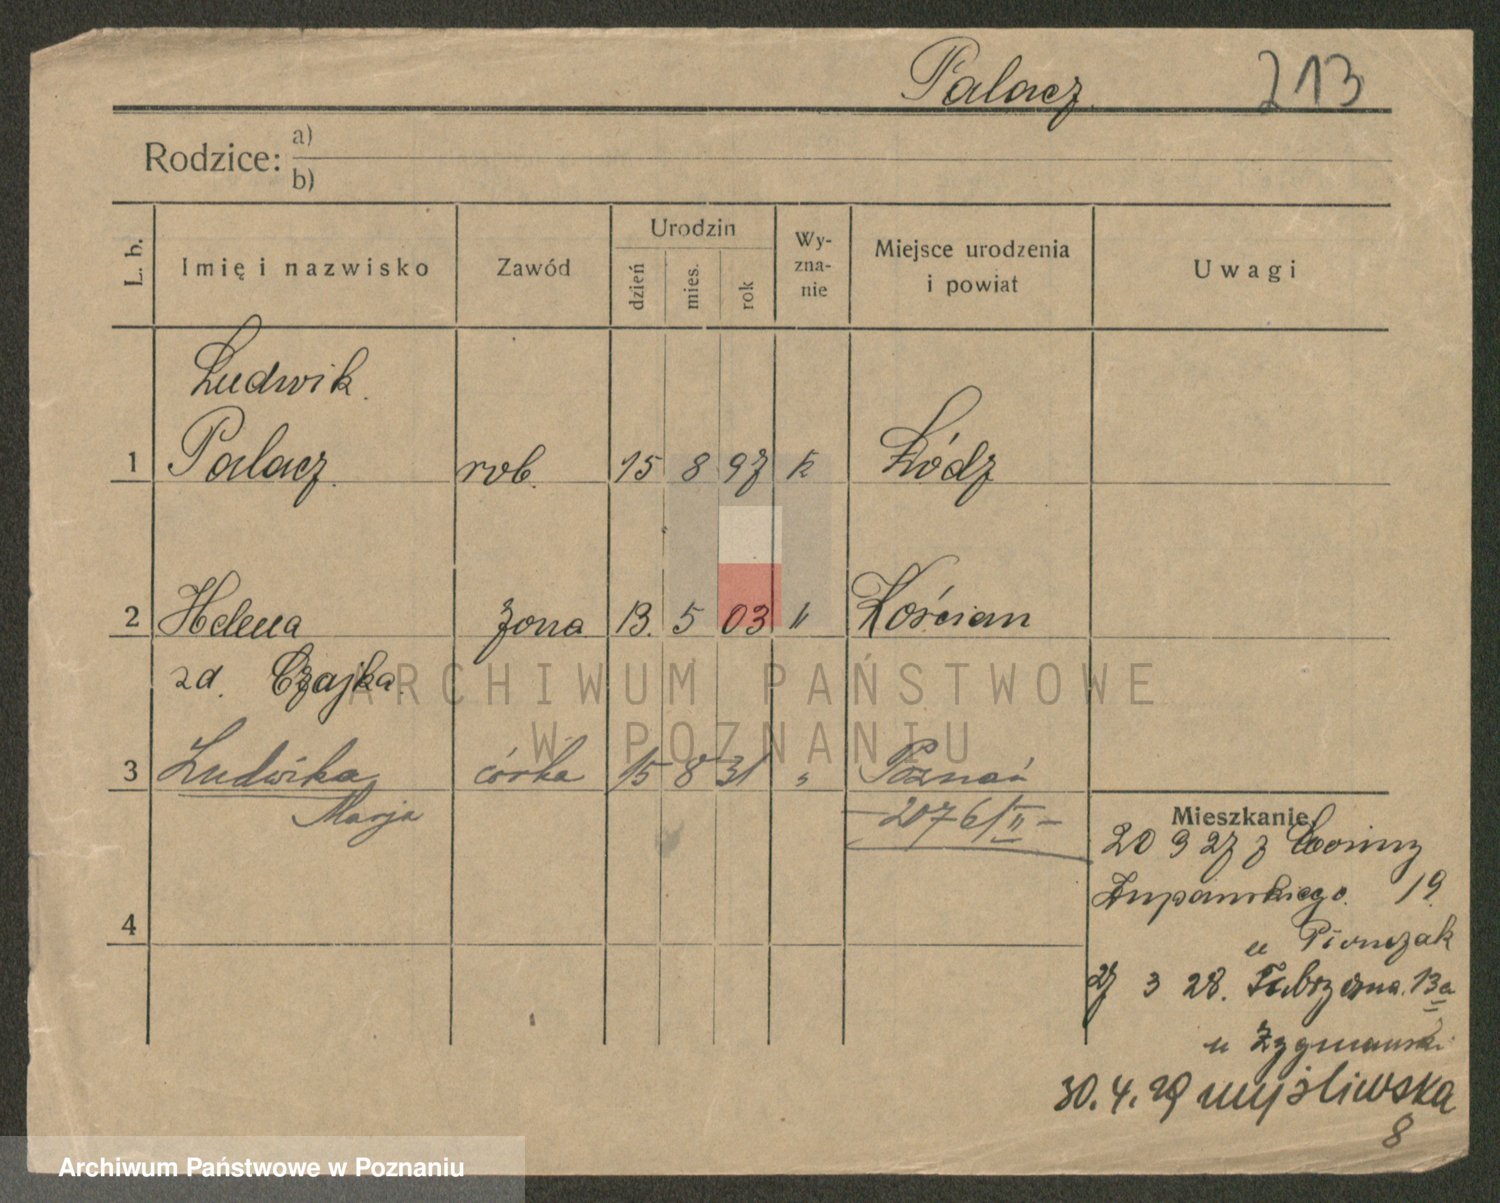 Palacz
213
Rodzice: a)
b)
L. b.
Imię i nazwisko
Zawód
Urodzin
dzień
mies.
rok
Wy-
zna-
nie
Miejsce urodzenia
i powiat
Uwagi
Ludwik
1 Palacz rob. 15 8 97 k Łódz
2 Helena żona 13. 5 03 " Kościan
zd. Czajka
3 Ludwika córka 15 8 31 " Poznań
Marja
— 2076/II —
Mieszkanie
20 9 27 z
Żupańskiego 19
u
4
27 3 28. 13a
u
30. 4. 29 myśliwska
8
ARCHIWUM PAŃSTWOWE
W POZNANIU
Archiwum Państwowe w Poznaniu